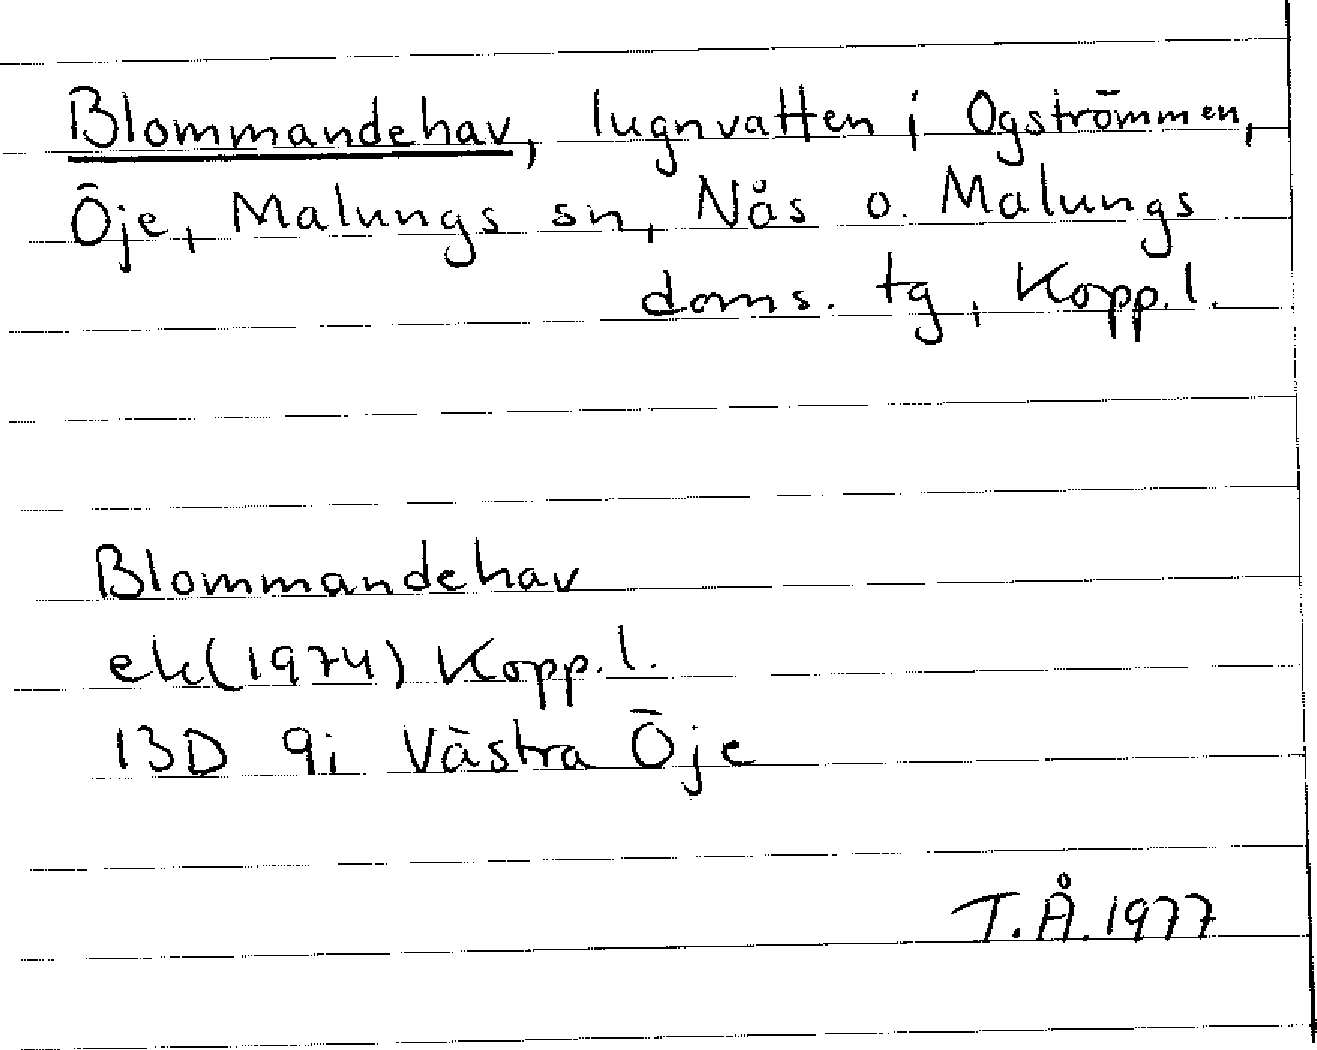 Blommandehav, lugnvatten i Ogströmmen,
Öje, Malungs sn, Nås o. Malungs
doms. tg, Kopp. l.
Blommandehav
ek (1974) Kopp. l.
13D 9i Västra Öje
T.Å. 1977